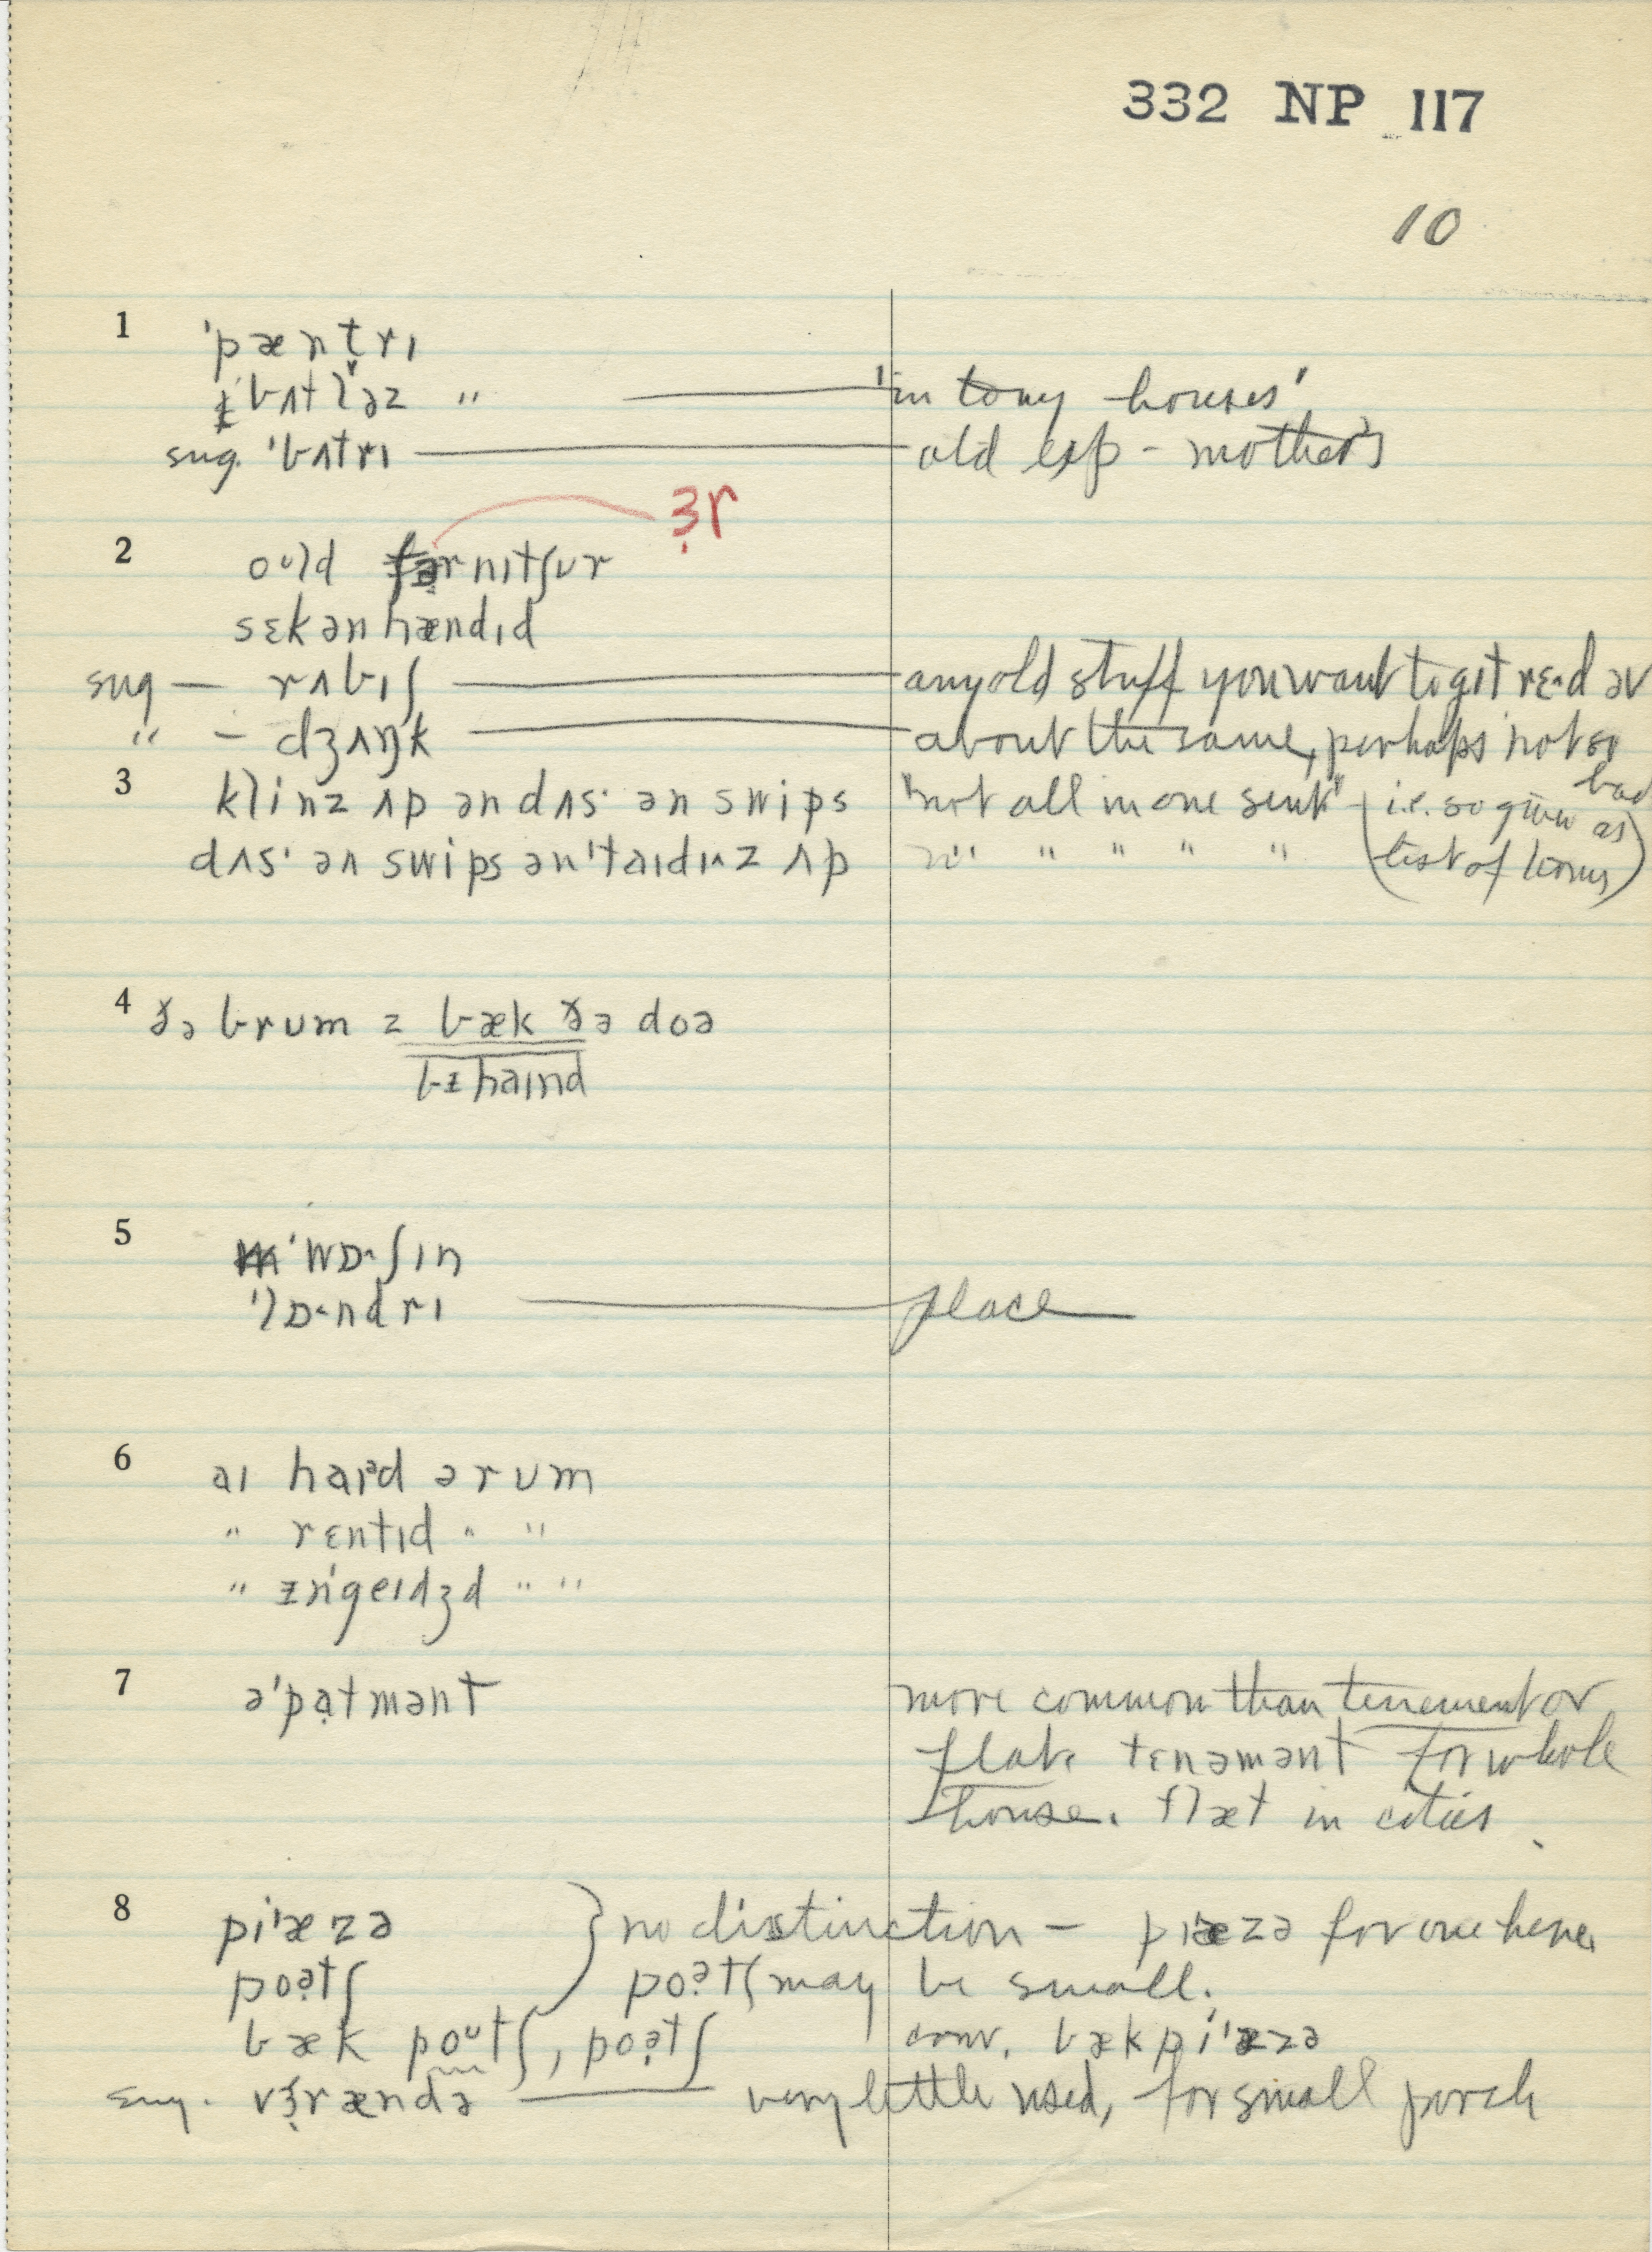 332 NP 117
10
1 ˈpæntrɪ
ˈbʌtləz " 'in tony houses'
sug. ˈbʌtrɪ old exp - mother's
ɜ̣r
2 oᵘld fərnɪtʃʊr
sɛkənhændɪd
sug — rʌbɪʃ any old stuff you want to gɪt rɛ˞d əv
" — dʒʌŋk about the same, perhaps not so bad
3 klinz ʌp ən dʌsˑ ən swips "not all in one sent" (i.e. so given as
dʌsˑ ən swips ənˈtaɪdɪ˄z ʌp " " " " " list of terms)
4 ðə brum z bæk ðə doə
bɪ̵haɪnd
5 ˈwɒˑʃɪn
ˈlɒˑndrɪ place
6 aɪ haɪᵊd ə rum
" rɛntɪd " "
" ɪ̵nˈgeɪdʒd " "
7 əˈpạtmənt more common than tenement or
flat. tɛnəmənt for whole
house. flæt in cities.
8 piˈæzə } no distinction — piˈæzə for one here,
poə̣tʃ poə̣tʃ may be small.
bæk poᵘtʃ, poə̣tʃ conv. bæk piˈæzə
sug. vɜ̣rændə very little used, for small porch